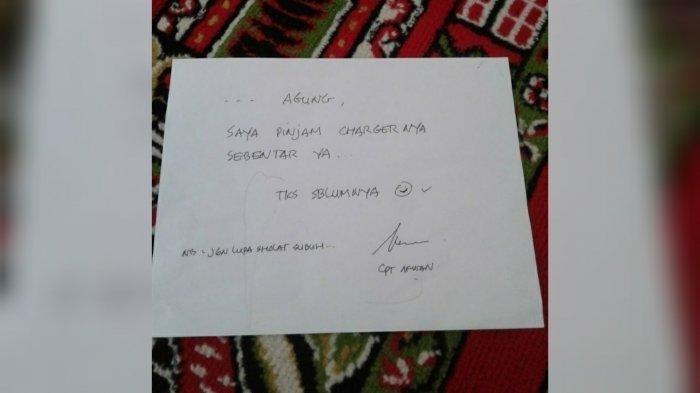 --- AGUNG,
SAYA PINJAM CHARGERNYA
SEBENTAR YA...
TKS SBLUMNYA ☺
NB - JGN LUPA SHOLAT SUBUH...
CPT AFWAN